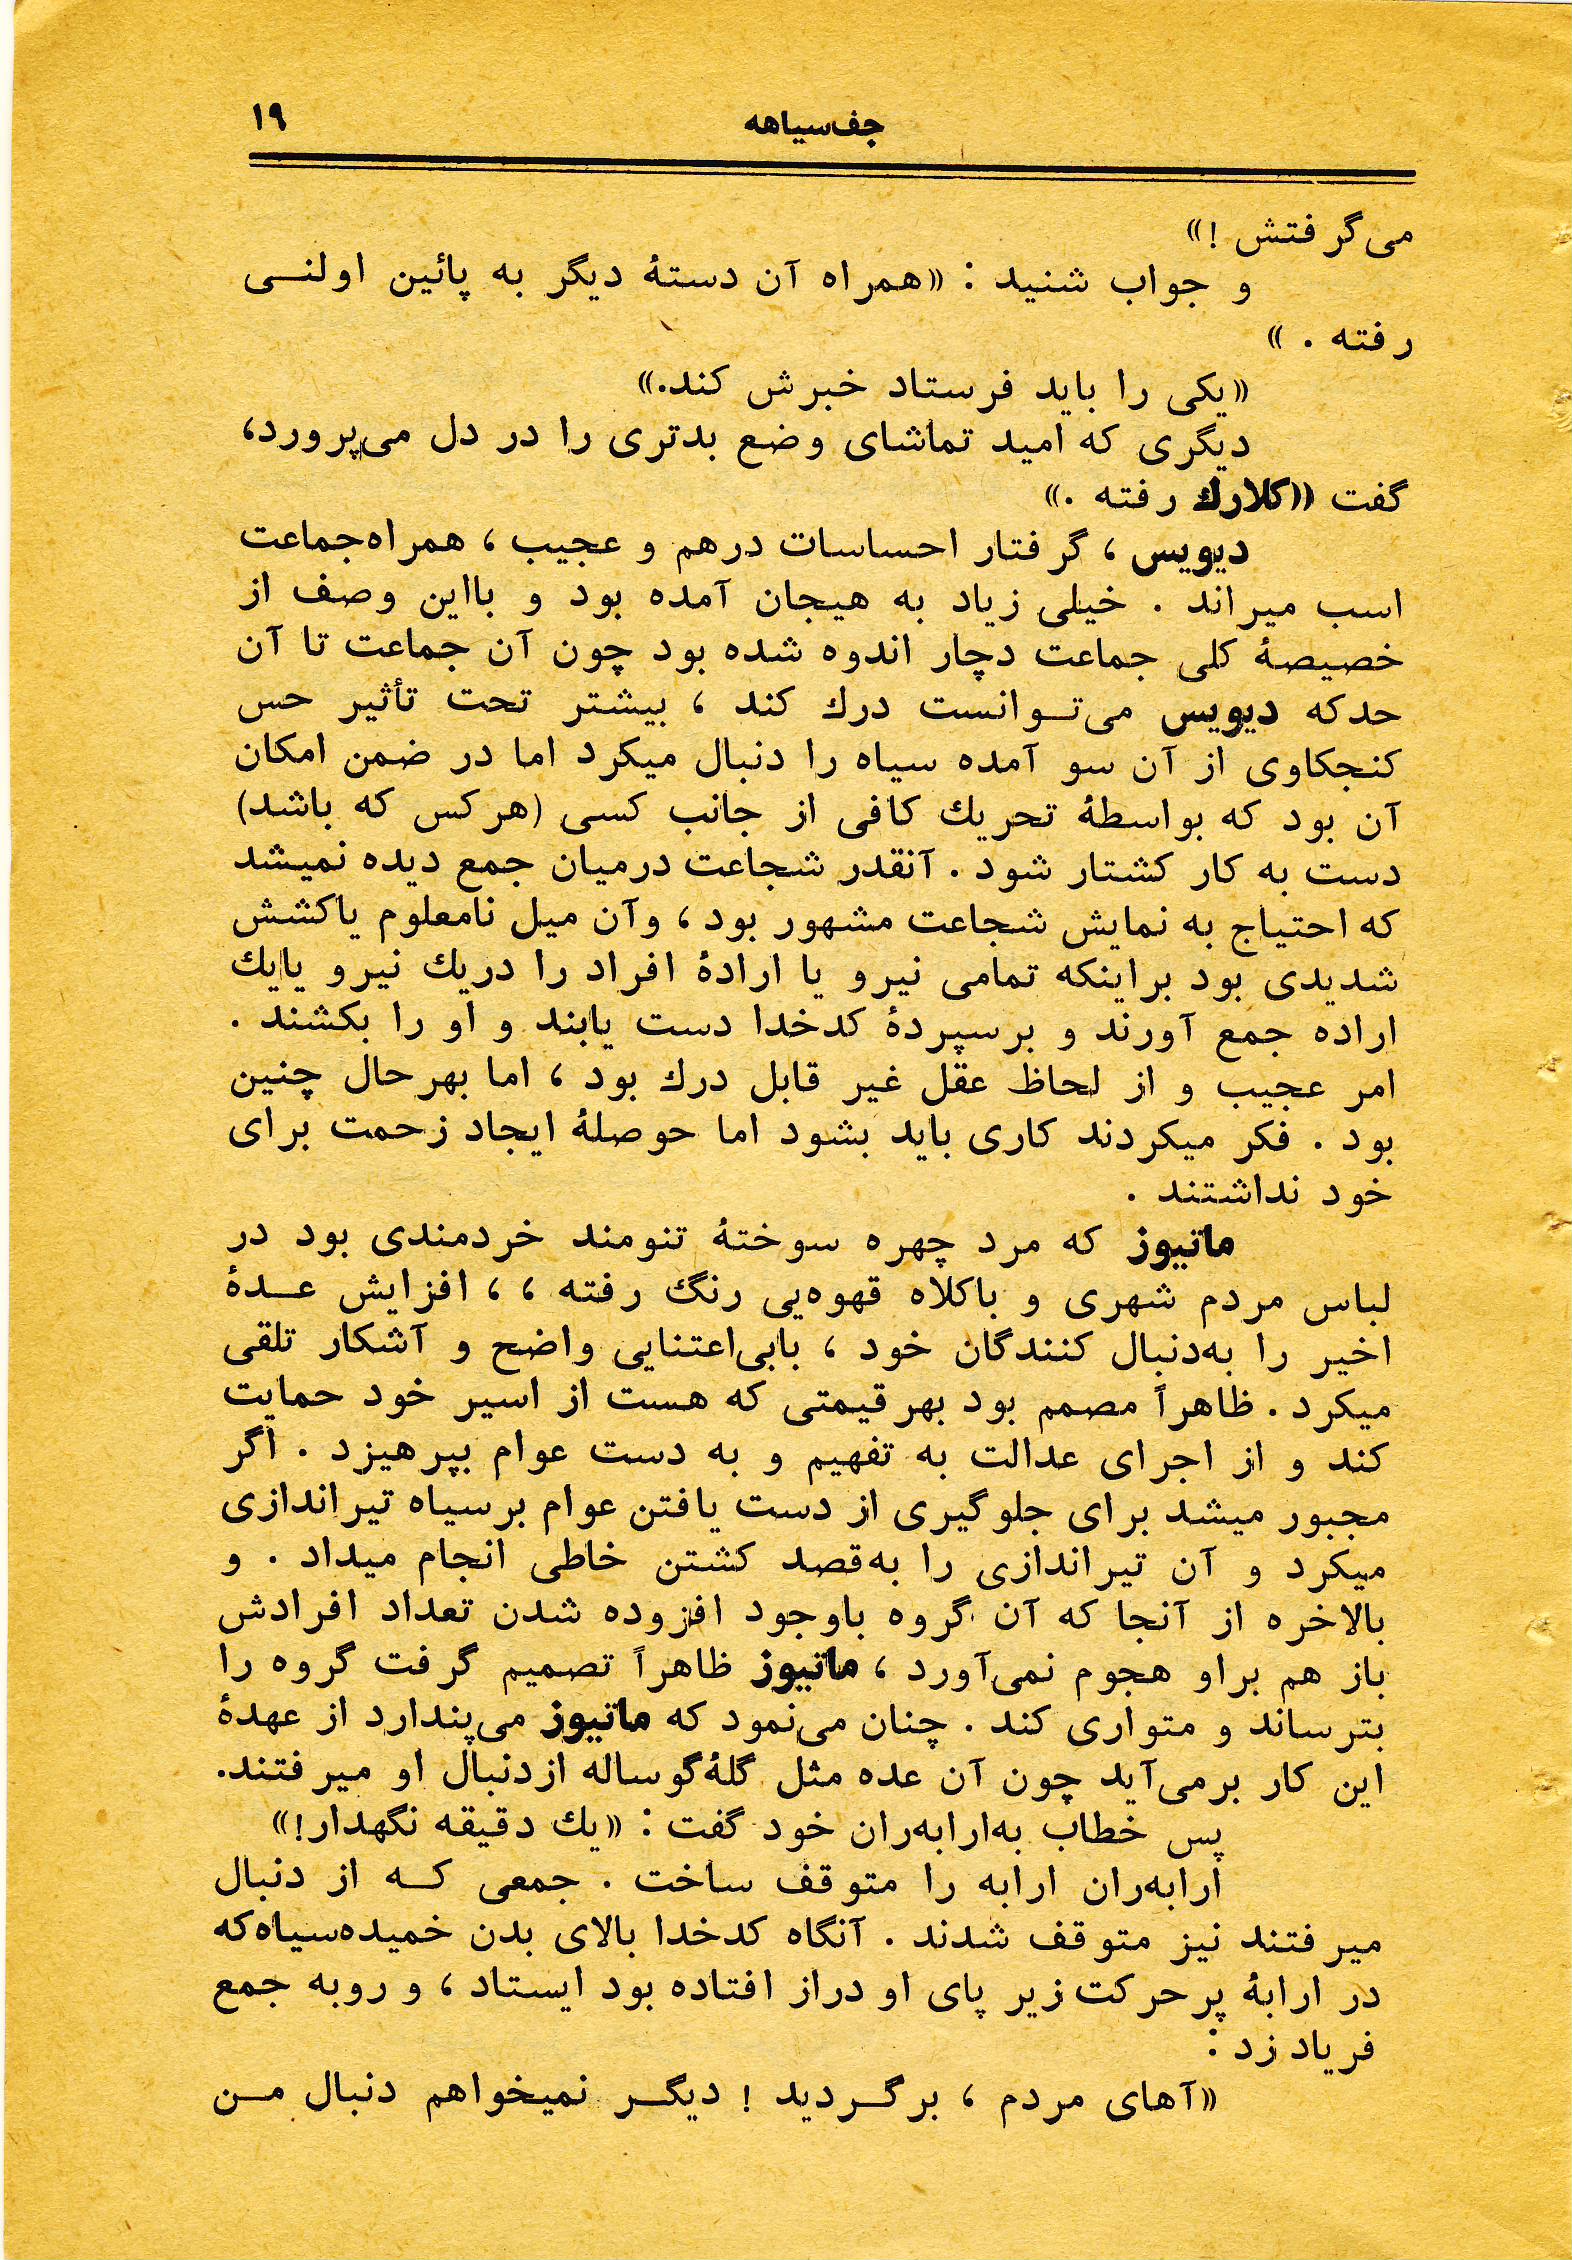 جف‌سیاهه ۱۹
می‌گرفتش !»
و جواب شنید : «همراه آن دستهٔ دیگر به پائین اولنـی
رفته . »
«یکی را باید فرستاد خبرش کند.»
دیگری که امید تماشای وضع بدتری را در دل می‌پرورد،
گفت «کلارك رفته .»
دیویس ، گرفتار احساسات درهم و عجیب ، همراه‌جماعت
اسب میراند . خیلی زیاد به هیجان آمده بود و بااین وصف از
خصیصهٔ کلی جماعت دچار اندوه شده بود چون آن جماعت تا آن
حدکه دیویس می‌تـوانست درك کند ، بیشتر تحت تأثیر حس
کنجکاوی از آن سو آمده سیاه را دنبال میکرد اما در ضمن امکان
آن بود که بواسطهٔ تحریك کافی از جانب کسی (هرکس که باشد)
دست به کار کشتار شود . آنقدر شجاعت درمیان جمع دیده نمیشد
که احتیاج به نمایش شجاعت مشهور بود ، وآن میل نامعلوم یاکشش
شدیدی بود براینکه تمامی نیرو یا ارادهٔ افراد را دریك نیرو یایك
اراده جمع آورند و برسپردهٔ کدخدا دست یابند و او را بکشند .
امر عجیب و از لحاظ عقل غیر قابل درك بود ، اما بهرحال چنین
بود . فکر میکردند کاری باید بشود اما حوصلهٔ ایجاد زحمت برای
خود نداشتند .
ماتیوز که مرد چهره سوختهٔ تنومند خردمندی بود در
لباس مردم شهری و باکلاه قهوه‌یی رنگ رفته ، ، افزایش عـدهٔ
اخیر را به‌دنبال کنندگان خود ، بابی‌اعتنایی واضح و آشکار تلقی
میکرد . ظاهراً مصمم بود بهرقیمتی که هست از اسیر خود حمایت
کند و از اجرای عدالت به تفهیم و به دست عوام بپرهیزد . اگر
مجبور میشد برای جلوگیری از دست یافتن عوام برسیاه تیراندازی
میکرد و آن تیراندازی را به‌قصد کشتن خاطی انجام میداد . و
بالاخره از آنجا که آن گروه باوجود افزوده شدن تعداد افرادش
باز هم براو هجوم نمی‌آورد ، ماتیوز ظاهراً تصمیم گرفت گروه را
بترساند و متواری کند . چنان می‌نمود که ماتیوز می‌پندارد از عهدهٔ
این کار برمی‌آید چون آن عده مثل گلهٔ‌گوساله ازدنبال او میرفتند.
پس خطاب به‌ارابه‌ران خود گفت : «یك دقیقه نگهدار!»
ارابه‌ران ارابه را متوقف ساخت . جمعی کـه از دنبال
میرفتند نیز متوقف شدند . آنگاه کدخدا بالای بدن خمیده‌سیاه‌که
در ارابهٔ پرحرکت زیر پای او دراز افتاده بود ایستاد ، و روبه جمع
فریاد زد :
«آهای مردم ، برگـردید ! دیگـر نمیخواهم دنبال مـن